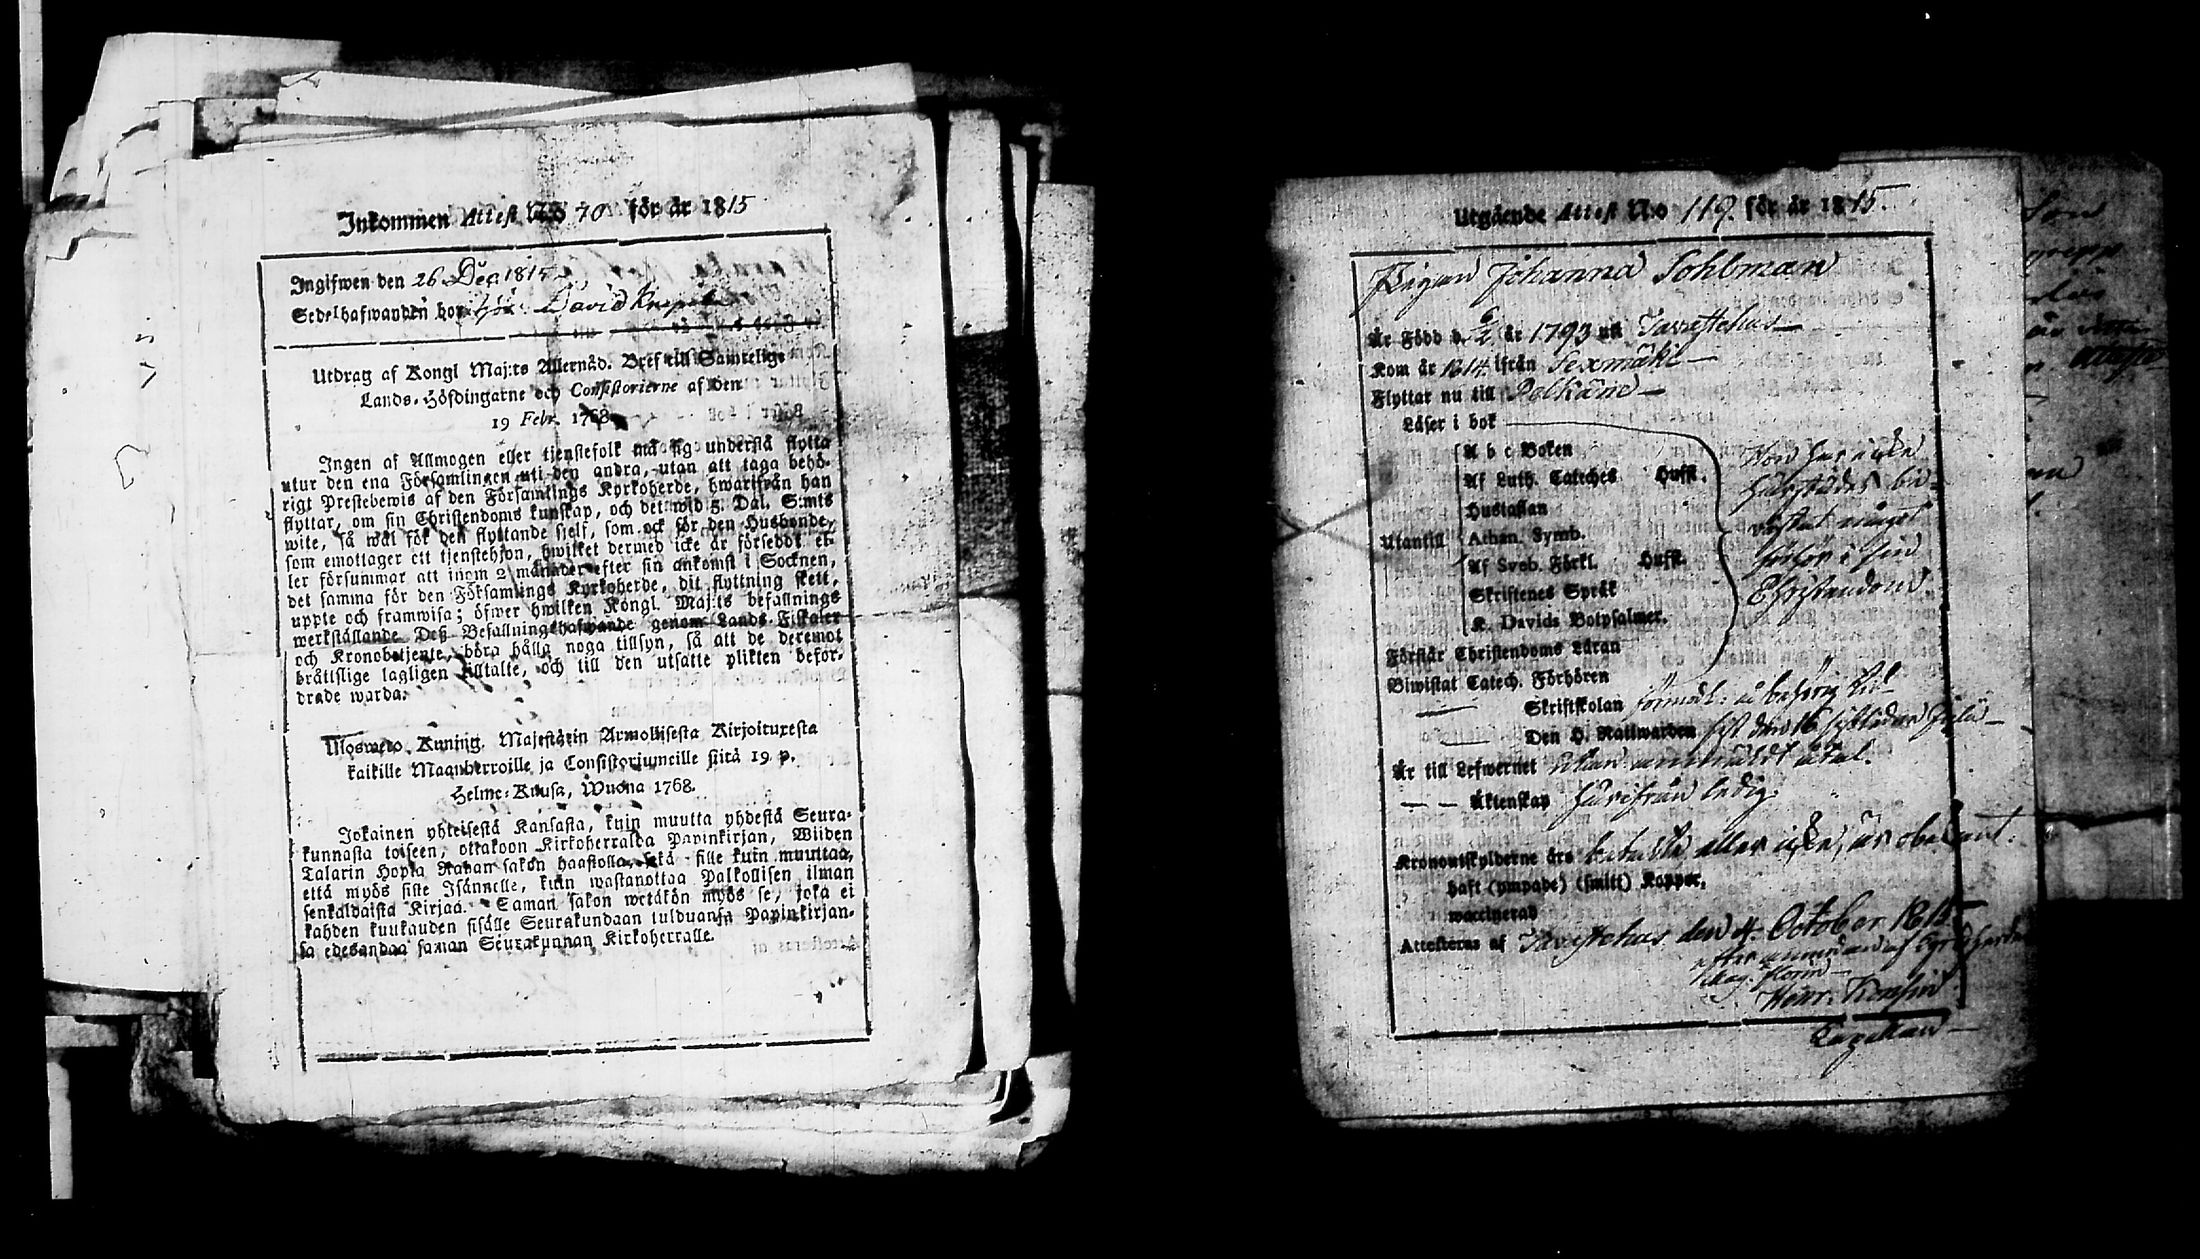 Inkommen Attest N:o 70 för år 1815
Ingifwen den 26 Dec 1815
Sedelhafwanden hos David
Utdrag af Kongl Maj:ts Allernåd. Bref till Samtelige
Lands-Höfdingarne och Consistorierne af den
19 Febr. 1768
Ingen af Allmogen eller tjenstefolk må sig understå flytta
utur den ena Församlingen uti den andra, utan att taga behö-
rigt Prestebewis af den Församlings Kyrkoherde, hwarifrån han
flyttar, om sin Christendoms kunskap, och det wid 5. Dal. S:mts
wite, så wäl för den flyttande sjelf, som ock för den Husbonde,
som emottager ett tjenstehjon, hwilket dermed icke är förseddt el-
ler försummar att inom 2 månader efter sin ankomst i Socknen,
det samma för den Församlings Kyrkoherde, dit flyttning skett,
uppte och framwisa; öfwer hwilken Kongl. Maj:ts befallnings
werkställande Deß Befallningshafwande genom Lands-Fiskaler
och Kronobetjente, böra hålla noga tillsyn, så att de deremot
bråttslige lagligen tilltalte, och till den utsatte plikten beför-
drade warda.
Ulosweto Kuning. Majestätin Armollisesta Kirjoituxesta
kaikille Maanherroille ja Consistoriumeille siitä 19. p.
Helme-Kuusa, Wuona 1768.
Jokainen yhteisestä Kansasta, kuin muutta yhdestä Seura-
kunnasta toiseen, ottakoon Kirkoherralda Papinkirjan, Wiiden
Talarin Hopia Rahan sakon haastolla, sekä sille kuin muuttaa,
että myös sille Isännelle, kuin wastanottaa Palkollisen ilman
senkaldaista Kirjaa. Saman sakon wetäkön myös se, joka ei
kahden kuukauden sisälle Seurakundaan tulduansa Papinkirjan-
sa edesandaa saman Seurakunnan Kirkoherralle.
Utgående Attest N:o 119. för år 1815.
Pigan Johanna Sohlman
Är Född d. 6/2 år 1793 uti Tavastehus
Kom år 1814 ifrån Sexmäki
Flyttar nu till Pelkäne
Läser i bok
A b c Boken
Af Luth. Cateches Hufst.
Hustaflan
Utantill Athan. Symb.
Af Sveb. Förkl. Hufst.
Skriftenes Språk
K. Davids Botpsalmer.
Hon har icke
härstädes bi-
vistat något
förhör i sin
Christendom.
Förstår Christendoms Läran
Biwistat Catech. Förhören
Skriftskolan
Den H. Nattwarden sist den 16
Är till Lefwernet utan
Äktenskap härifrån ledig.
Kronoutskylderne äro betalda eller icke, är obekant.
haft (ympade) (smitt) Koppor,
waccinerad
Attesteras af Tavastehus den 4. October 1815
Henr.